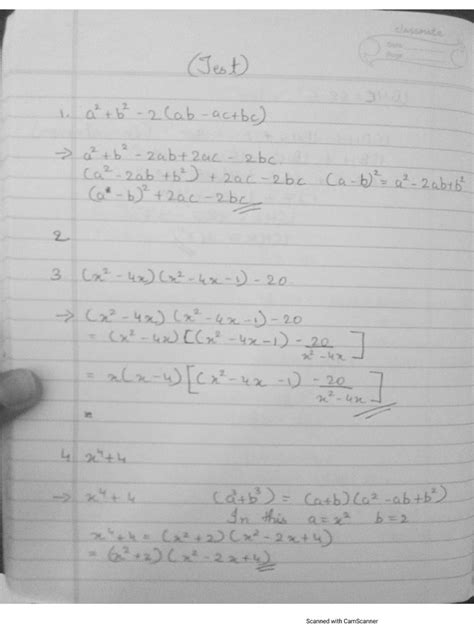 classmate
Date
Page
(Test)
1. a² + b² - 2(ab - ac + bc)
→ a² + b² - 2ab + 2ac - 2bc
(a² - 2ab + b²) + 2ac - 2bc (a-b)² = a² - 2ab + b²
(a - b)² + 2ac - 2bc
2
3 (x² - 4x)(x² - 4x - 1) - 20
→ (x² - 4x)(x² - 4x - 1) - 20
= (x² - 4x)[(x² - 4x - 1) - 20/x² - 4x]
= x(x - 4)[(x² - 4x - 1) - 20/x² - 4x]
4. x⁴ + 4
→ x⁴ + 4 (a³ + b³) = (a+b)(a² - ab + b²)
In this a = x² b = 2
x⁴ + 4 = (x² + 2)(x² - 2x + 4)
= (x² + 2)(x² - 2x + 4)
Scanned with CamScanner